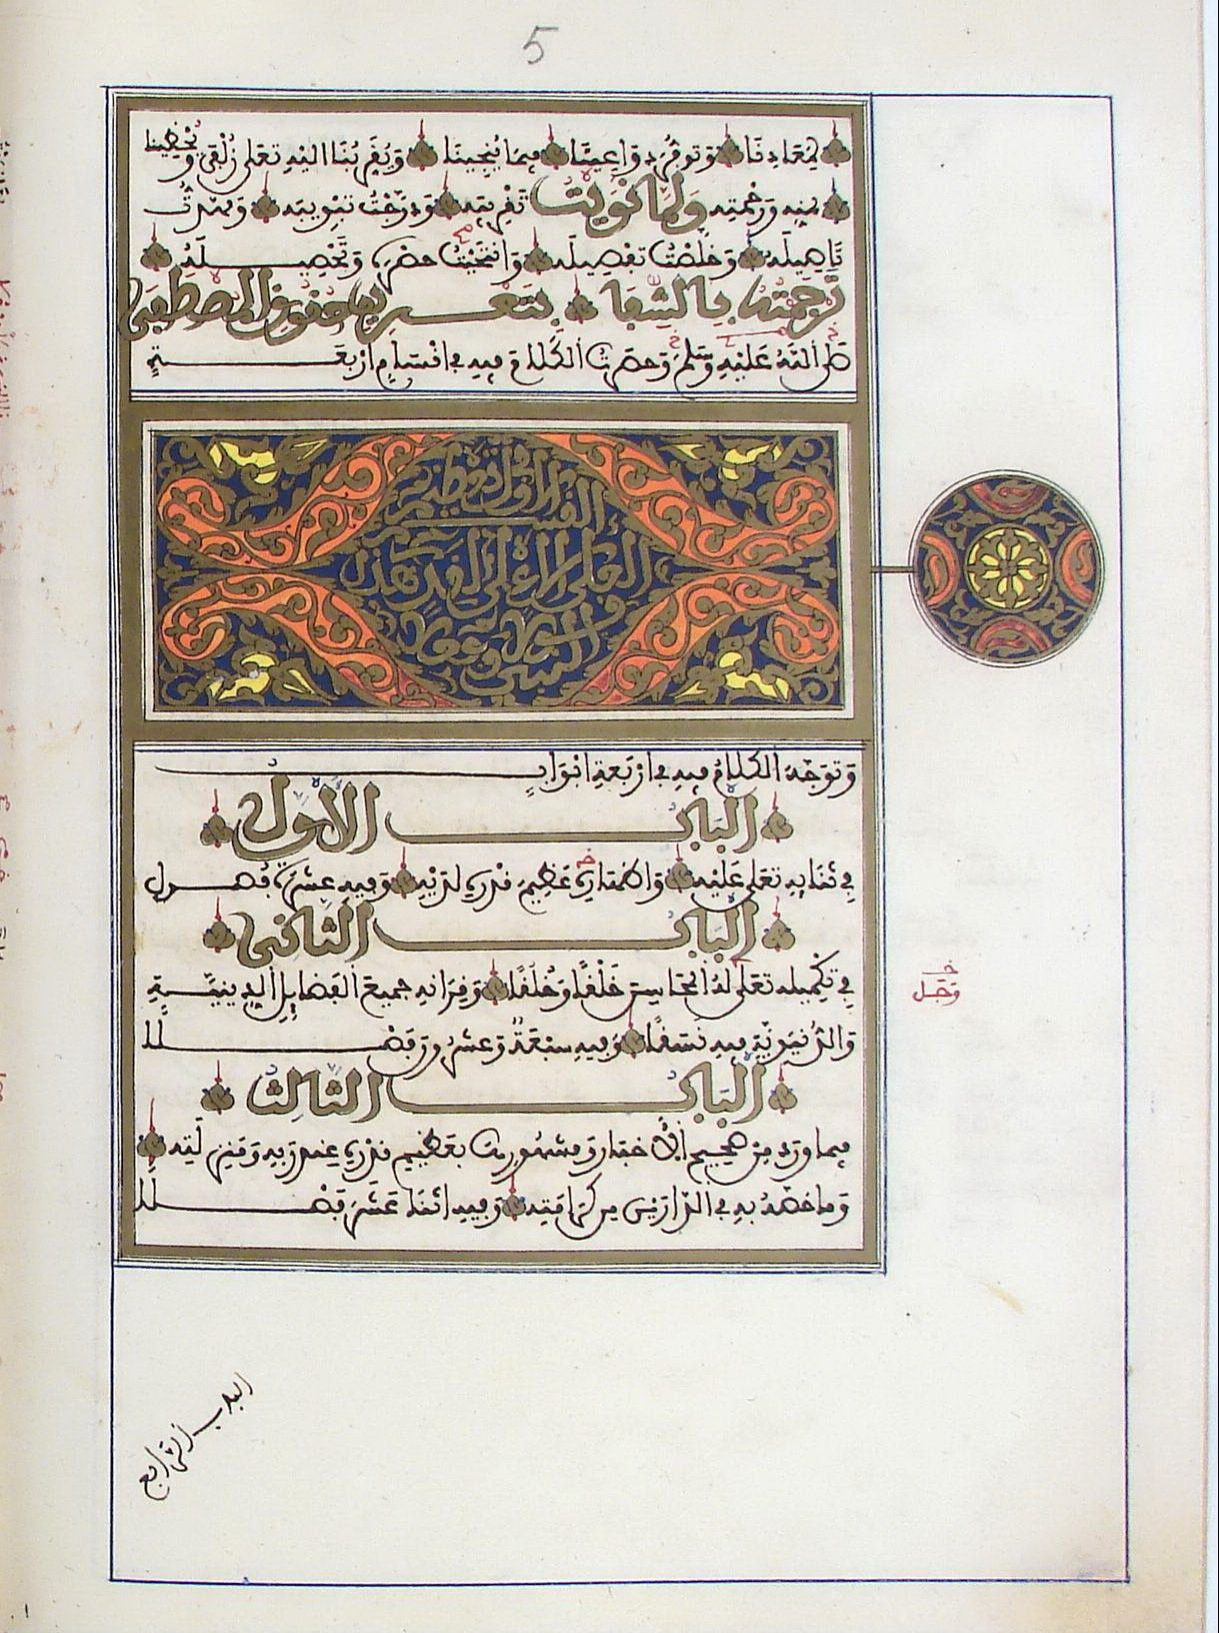 5
لمعادنا وتوفر دواعينا فيما ينجينا ويقربنا اليه تعلى زلفى ويحظينا
بمنه ورحمته ولما نويت تقريبه ودرجت تبويبه ومهدت
تاصيله وخلصت تفصيله وانتحيت حصره وتحصيله
ترجمته بالشفا بتعريف حقوق المصطفى
صلى الله عليه وسلم وحصرت الكلام فيه في اقسام اربعة
القسم الاول في تعظيم
العلي الاعلى لقدر هذا
النبي قولا وفعلا
وتوجه الكلام فيه في اربعة ابواب
الباب الاول
في ثنايه تعلى عليه واظهاره عظيم قدره لديه وفيه عشرة فصول
الباب الثاني
في تكميله تعلى له المحاسن خلقا وخلقا وقرانه جميع الفضايل الدينية
والدنيوية فيه نسقا وفيه سبعة وعشرون فصلا
الباب الثالث
فيما ورد من صحيح الاخبار ومشهورها بعظيم قدره عند ربه ومنزلته
وما خصه به في الدارين من كرامته وفيه اثنا عشر فصلا
الباب الرابع